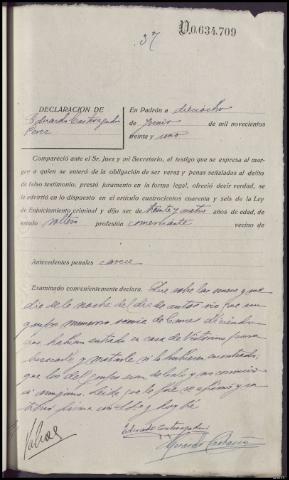 37
V.0.634.709
DECLARACION DE
Eduardo Castro
Perez
En Padrón a dieciocho
de Junio de mil novecientos
treinta y uno
Compareció ante el Sr. Juez y mi Secretario, el testigo que se expresa al mar-
gen a quien se enteró de la obligación de ser veraz y penas señaladas al delito
de falso testimonio, prestó juramento en la forma legal, ofreció decir verdad, se
le advirtió en lo dispuesto en el artículo cuatrocientos cuarenta y seis de la Ley
de Enjuiciamiento criminal y dijo ser de treinta y cuatro años de edad, de
estado soltero profesión comerciante vecino de
Antecedentes penales carece
Examinado convenientemente declara: Que sobre las nueve y me
dia de la noche del dia de autos vio tras un
grupo numeroso diciendo
que habian entrado en casa de Victoriano para
buscarle y matarle si lo hubiesen encontrado,
que los del grupo eran de y no conocio
a ninguno. Leida que le fué se afirma y ra
tifica firma con S. S. doy fé
Eduardo